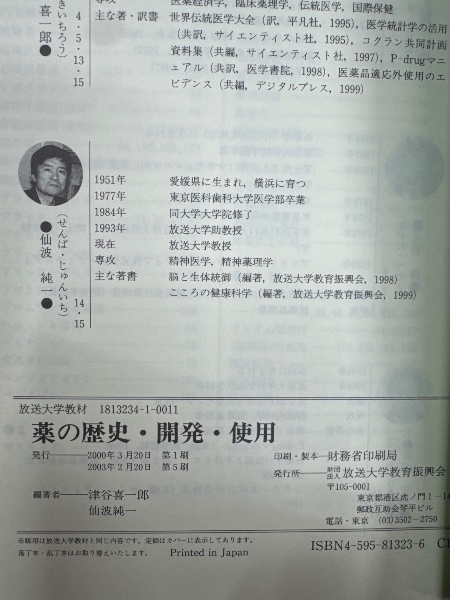 きいちろう)
喜一郎●
4・5・13・15
医薬経済学,臨床薬理学,伝統医学,国際保健
主な著・訳書 世界伝統医学大全(訳,平凡社,1995),医学統計学の活用
(共訳,サイエンティスト社,1995),コクラン共同計画
資料集(共編,サイエンティスト社,1997),P-drugマニ
ュアル(共訳,医学書院,1998),医薬品適応外使用のエ
ビデンス(共編,デジタルプレス,1999)
(せんば・じゅんいち)
●仙波 純一●
14・15
1951年 愛媛県に生まれ,横浜に育つ
1977年 東京医科歯科大学医学部卒業
1984年 同大学大学院修了
1993年 放送大学助教授
現在 放送大学教授
専攻 精神医学,精神薬理学
主な著書 脳と生体統御(編著,放送大学教育振興会,1998)
こころの健康科学(編著,放送大学教育振興会,1999)
放送大学教材 1813234-1-0011
薬の歴史・開発・使用
発行——2000年3月20日 第1刷
2003年2月20日 第5刷
編著者——津谷喜一郎
仙波純一
印刷・製本—財務省印刷局
発行所——財団法人 放送大学教育振興会
〒105-0001
東京都港区虎ノ門1-14
郵政互助会琴平ビル
電話・東京 (03)3502-2750
市販用は放送大学教材と同じ内容です。定価はカバーに表示してあります。
落丁本・乱丁本はお取り替えいたします。 Printed in Japan
ISBN4-595-81323-6